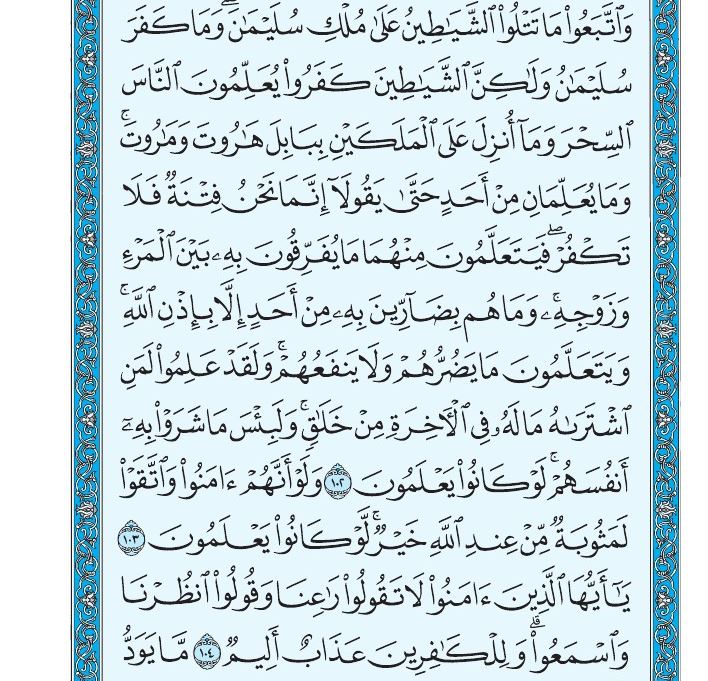 وَٱتَّبَعُوا۟ مَا تَتْلُوا۟ ٱلشَّيَٰطِينُ عَلَىٰ مُلْكِ سُلَيْمَٰنَ ۖ وَمَا كَفَرَ
سُلَيْمَٰنُ وَلَٰكِنَّ ٱلشَّيَٰطِينَ كَفَرُوا۟ يُعَلِّمُونَ ٱلنَّاسَ
ٱلسِّحْرَ وَمَآ أُنزِلَ عَلَى ٱلْمَلَكَيْنِ بِبَابِلَ هَٰرُوتَ وَمَٰرُوتَ ۚ
وَمَا يُعَلِّمَانِ مِنْ أَحَدٍ حَتَّىٰ يَقُولَآ إِنَّمَا نَحْنُ فِتْنَةٌ فَلَا
تَكْفُرْ ۖ فَيَتَعَلَّمُونَ مِنْهُمَا مَا يُفَرِّقُونَ بِهِۦ بَيْنَ ٱلْمَرْءِ
وَزَوْجِهِۦ ۚ وَمَا هُم بِضَآرِّينَ بِهِۦ مِنْ أَحَدٍ إِلَّا بِإِذْنِ ٱللَّهِ ۚ
وَيَتَعَلَّمُونَ مَا يَضُرُّهُمْ وَلَا يَنفَعُهُمْ ۚ وَلَقَدْ عَلِمُوا۟ لَمَنِ
ٱشْتَرَىٰهُ مَا لَهُۥ فِى ٱلْءَاخِرَةِ مِنْ خَلَٰقٍ ۚ وَلَبِئْسَ مَا شَرَوْا۟ بِهِۦٓ
أَنفُسَهُمْ ۚ لَوْ كَانُوا۟ يَعْلَمُونَ ١٠٢ وَلَوْ أَنَّهُمْ ءَامَنُوا۟ وَٱتَّقَوْا۟
لَمَثُوبَةٌ مِّنْ عِندِ ٱللَّهِ خَيْرٌ ۖ لَّوْ كَانُوا۟ يَعْلَمُونَ ١٠٣
يَٰٓأَيُّهَا ٱلَّذِينَ ءَامَنُوا۟ لَا تَقُولُوا۟ رَٰعِنَا وَقُولُوا۟ ٱنظُرْنَا
وَٱسْمَعُوا۟ ۗ وَلِلْكَٰفِرِينَ عَذَابٌ أَلِيمٌ ١٠٤ مَّا يَوَدُّ